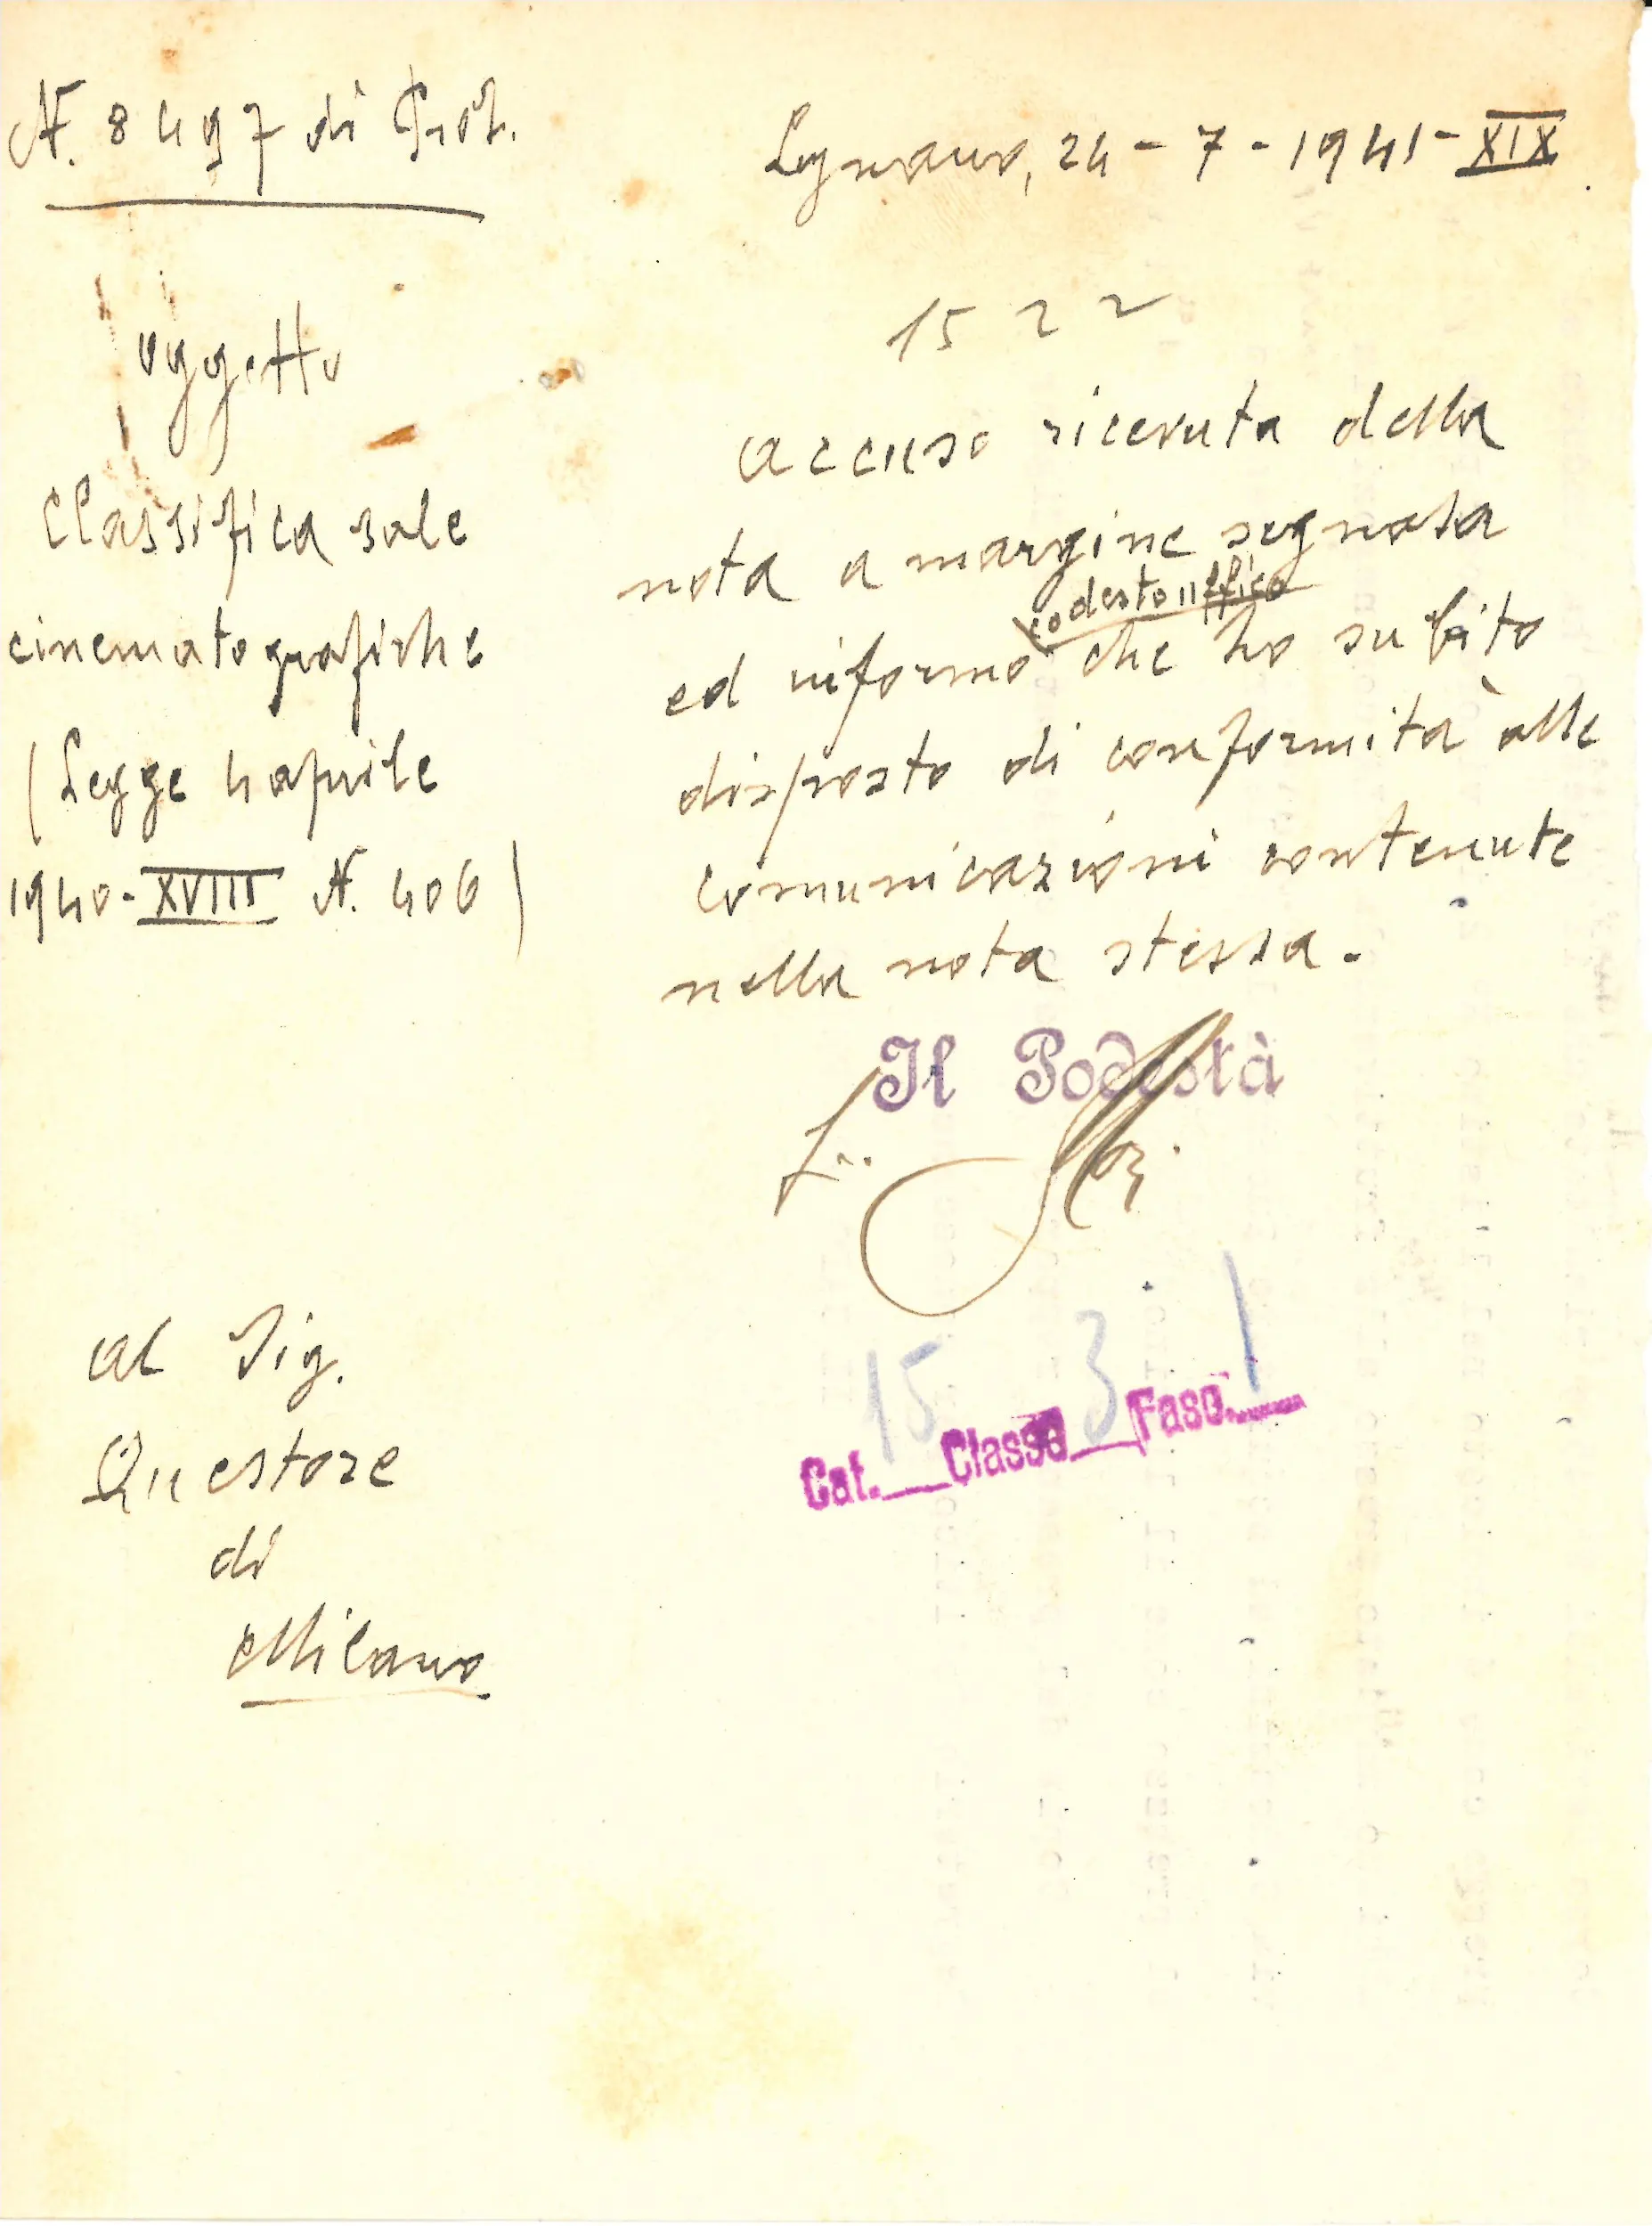 N. 8497 di Prot.
Legnano, 24-7-1941-XIX
1522
oggetto
Classifica sale
cinematografiche
(Legge 4 aprile
1940-XVIII N. 406)
accuso ricevuta della
nota a margine segnata
codesto uffico
ed informo che ho subito
disposto di conformità alle
comunicazioni contenute
nella nota stessa.
Il Podestà
al Sig.
Questore
di
Milano
15 3 1
Cat. Classe Fasc.